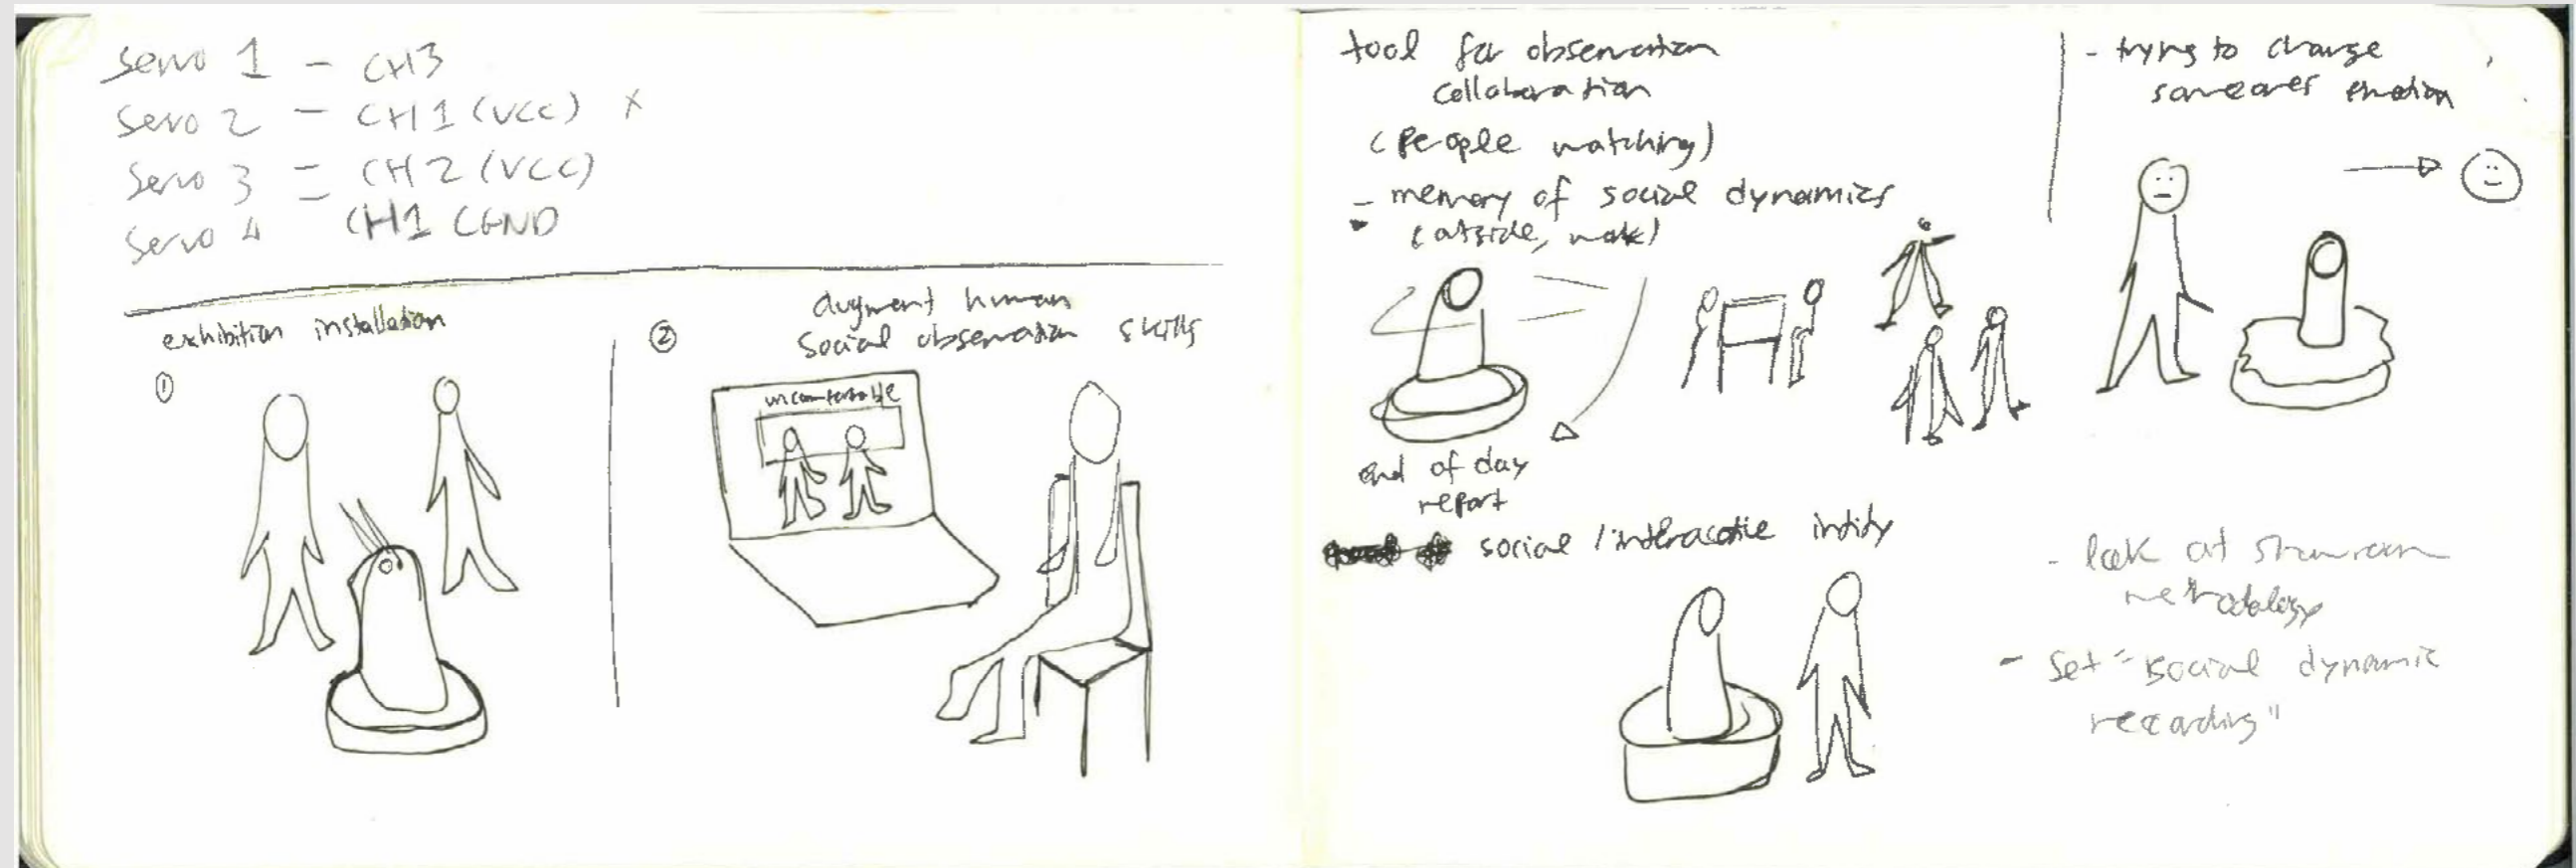 Servo 1 - CH3
Servo 2 - CH1 (VCC) x
Servo 3 = CH2 (VCC)
Servo 4 CH1 CGND
exhibition installation
①
②
augment human
social observation skills
uncomfortable
tool for observation
collaboration
(people watching)
- memory of social dynamics
(outside, work)
end of day
report
social / interacotie intidy
- trying to change
someones emotion
- look at showroom
methodology
- Set "social dynamic
recording"